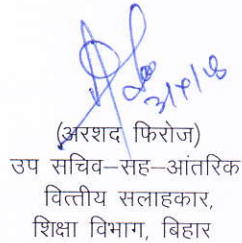 (अरशद फिरोज)
उप सचिव–सह–आंतरिक
वित्तीय सलाहकार,
शिक्षा विभाग, बिहार